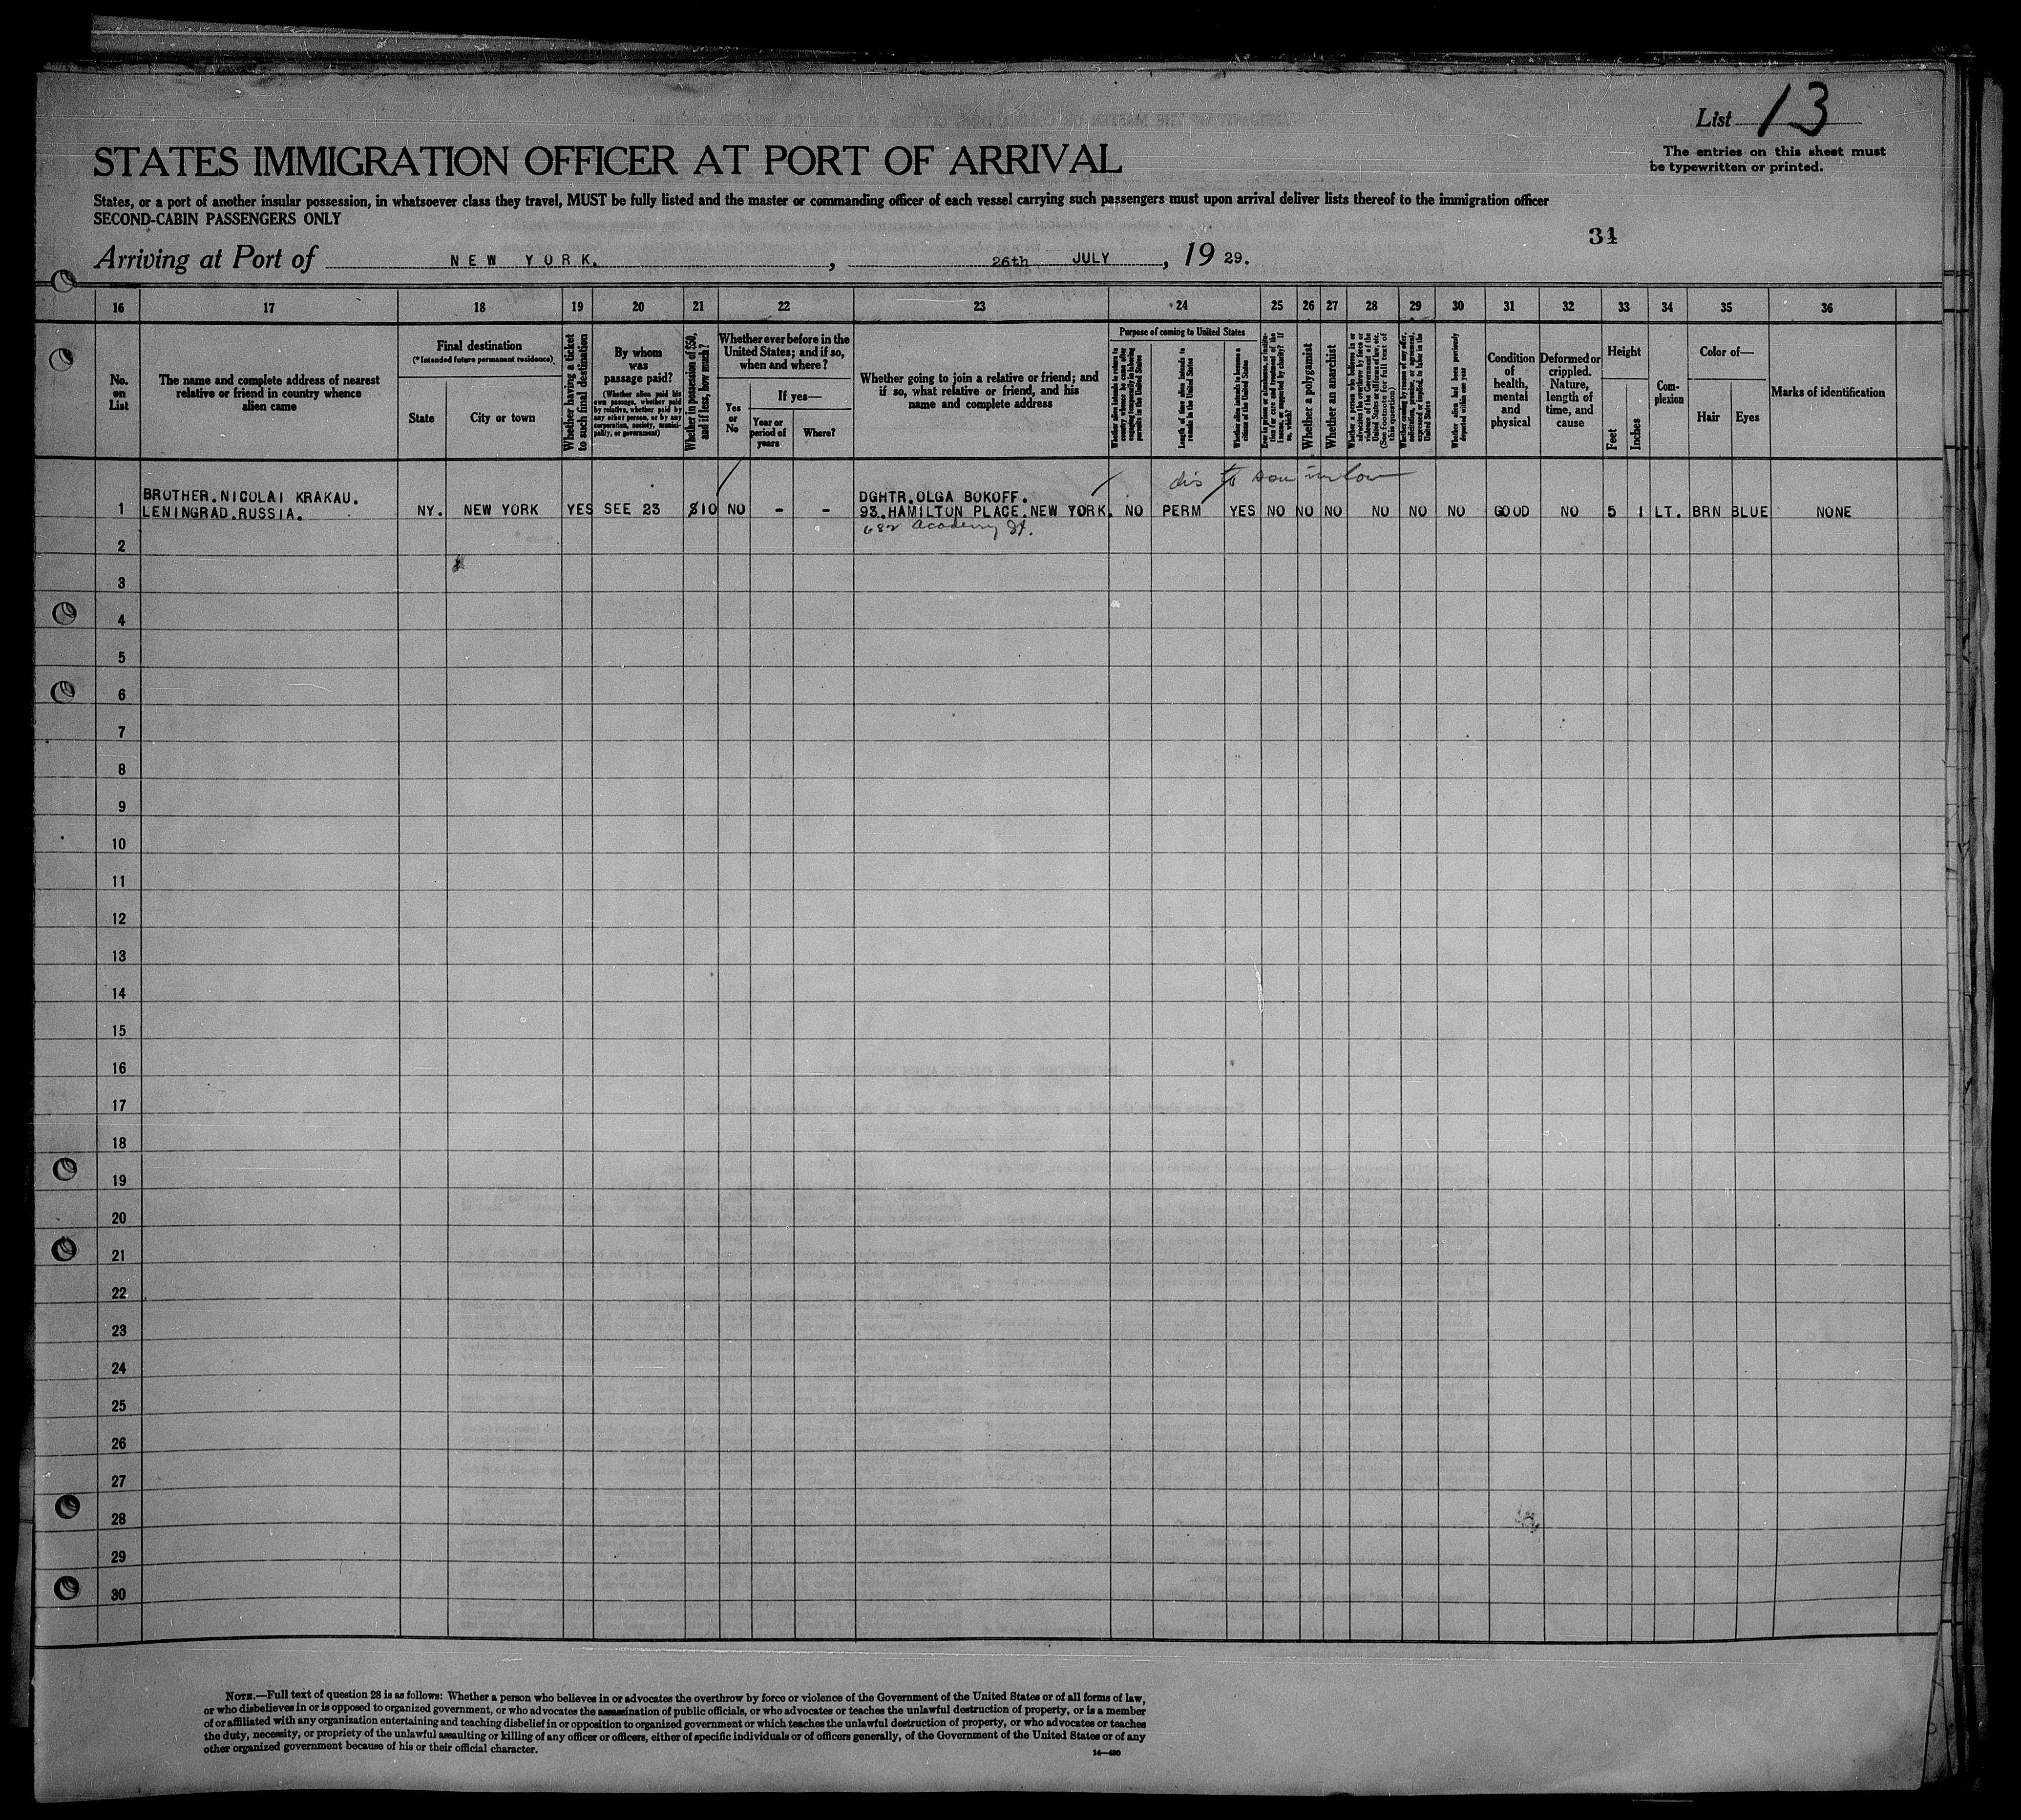 List 13
The entries on this sheet must
be typewritten or printed.
STATES IMMIGRATION OFFICER AT PORT OF ARRIVAL
States, or a port of another insular possession, in whatsoever class they travel, MUST be fully listed and the master or commanding officer of each vessel carrying such passengers must upon arrival deliver lists thereof to the immigration officer
SECOND-CABIN PASSENGERS ONLY
31
Arriving at Port of NEW YORK. , 26th JULY , 19 29.
16 17 18 19 20 21 22 23 24 25 26 27 28 29 30 31 32 33 34 35 36
No.
on
List
The name and complete address of nearest
relative or friend in country whence
alien came
Final destination
(*Intended future permanent residence)
State
City or town
Whether having a ticket
to such final destination
By whom
was
passage paid?
(Whether alien paid his
own passage, whether paid
by relative, whether paid by
any other person, or by any
corporation, society, munici-
pality, or government)
Whether in possession of $50,
and if less, how much?
Whether ever before in the
United States; and if so,
when and where?
Yes
or
No
If yes—
Year or
period of
years
Where?
Whether going to join a relative or friend; and
if so, what relative or friend, and his
name and complete address
Purpose of coming to United States
Whether alien intends to return to
country whence he came after
engaging temporarily in laboring
pursuits in the United States
Length of time alien intends to
remain in the United States
Whether alien intends to become a
citizen of the United States
Ever in prison or almshouse, or institu-
tion for care and treatment of the
insane, or supported by charity? If
so, which?
Whether a polygamist
Whether an anarchist
Whether a person who believes in or
advocates the overthrow by force or
violence of the Government of the
United States or all forms of law, etc.
(See footnote for full text of
this question)
Whether coming by reason of any offer,
solicitation, promise, or agreement,
expressed or implied, to labor in the
United States
Whether alien had been previously
deported within one year
Condition
of
health,
mental
and
physical
Deformed or
crippled.
Nature,
length of
time, and
cause
Height
Feet
Inches
Com-
plexion
Color of—
Hair
Eyes
Marks of identification
dis to son in law
BROTHER. NICOLAI KRAKAU. DGHTR. OLGA BOKOFF.
1 LENINGRAD. RUSSIA. NY. NEW YORK YES SEE 23 $10 NO - - 93. HAMILTON PLACE. NEW YORK. NO PERM YES NO NO NO NO NO NO GOOD NO 5 1 LT. BRN BLUE NONE
682 Academy St.
2
3
4
5
6
7
8
9
10
11
12
13
14
15
16
17
18
19
20
21
22
23
24
25
26
27
28
29
30
NOTE.—Full text of question 28 is as follows: Whether a person who believes in or advocates the overthrow by force or violence of the Government of the United States or of all forms of law,
or who disbelieves in or is opposed to organized government, or who advocates the assassination of public officials, or who advocates or teaches the unlawful destruction of property, or is a member
of or affiliated with any organization entertaining and teaching disbelief in or opposition to organized government or which teaches the unlawful destruction of property, or who advocates or teaches
the duty, necessity, or propriety of the unlawful assaulting or killing of any officer or officers, either of specific individuals or of officers generally, of the Government of the United States or of any
other organized government because of his or their official character.
14—480